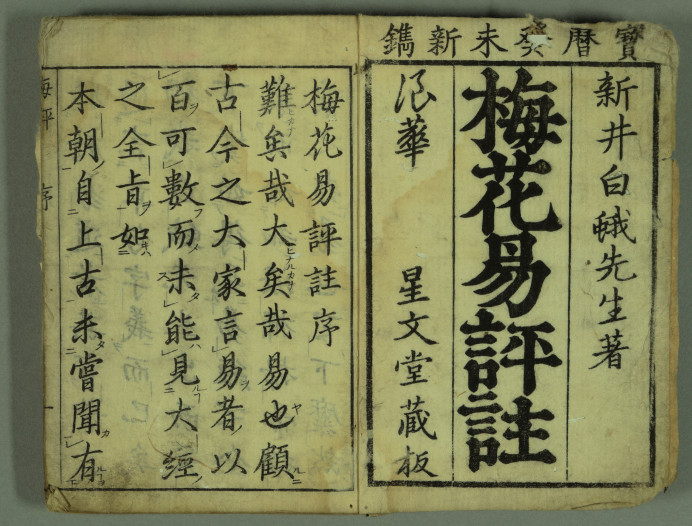 寳暦癸未新鐫
新井白蛾先生著
梅花易評註
浪華 星文堂藏板
梅花易評註序
難矣哉大矣哉易也顧
古今之大家言易者以
百可數而未能見大經
之全旨如
本朝自上古未嘗聞有
梅評 序 一